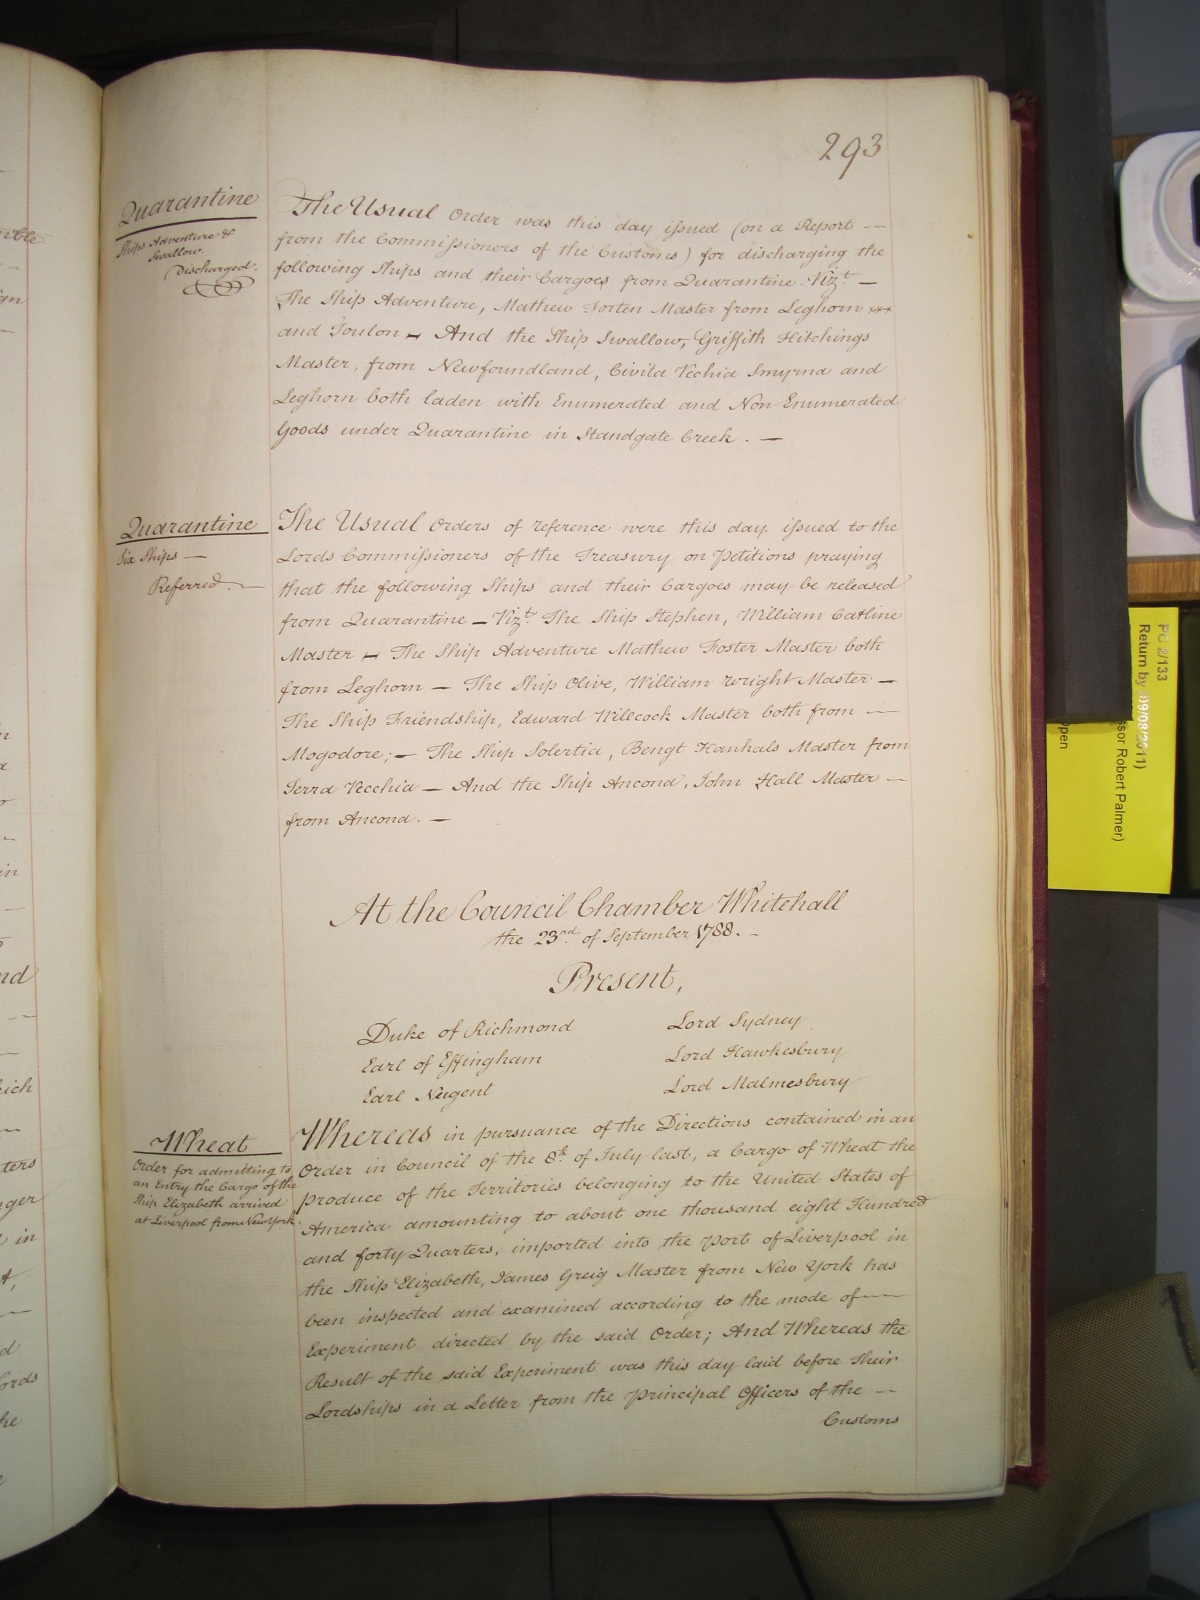 293
Quarantine
Ships Adventure &
Swallow
Discharged.
The Usual Order was this day issued (on a Report —
from the Commissioners of the Customs) for discharging the
following Ships and their Cargoes from Quarantine. Vizt. —
The Ship Adventure, Mathew Forten Master from Leghorn
and Toulon — And the Ship Swallow, Griffith Hitchings
Master, from Newfoundland, Civita Vechia Smyrna and
Leghorn both laden with Enumerated and Non-Enumerated
Goods under Quarantine in Standgate Creek. —
Quarantine
Six Ships —
Referred. —
The Usual Orders of reference were this day issued to the
Lords Commissioners of the Treasury on Petitions praying
that the following Ships and their Cargoes may be released
from Quarantine — Vizt. The Ship Stephen, William Catline
Master — The Ship Adventure Mathew Foster Master both
from Leghorn — The Ship Olive, William Wright Master —
The Ship Friendship, Edward Willcock Master both from —
Mogodore; — The Ship Solertia, Bengt Hankals Master from
Terra Vecchia — And the Ship Ancona, John Hall Master —
from Ancona. —
At the Council Chamber Whitehall
the 23nd. of September 1788. —
Present,
Duke of Richmond
Earl of Effingham
Earl Nugent
Lord Sydney
Lord Hawkesbury
Lord Malmesbury
Wheat
Order for admitting to
an Entry the Cargo of the
Ship Elizabeth arrived
at Liverpool from New York.
Whereas in pursuance of the Directions contained in an
Order in Council of the 8th. of July last, a Cargo of Wheat the
produce of the Territories belonging to the United States of
America amounting to about one thousand eight Hundred
and forty Quarters, imported into the Port of Liverpool in
the Ship Elizabeth, James Greig Master from New York has
been inspected and examined according to the mode of —
Experiment directed by the said Order; And Whereas the
Result of the said Experiment was this day laid before Their
Lordships in a Letter from the Principal Officers of the —
Customs
PC 2/133
Return by (09/08/2011)
ssor Robert Palmer)
Open